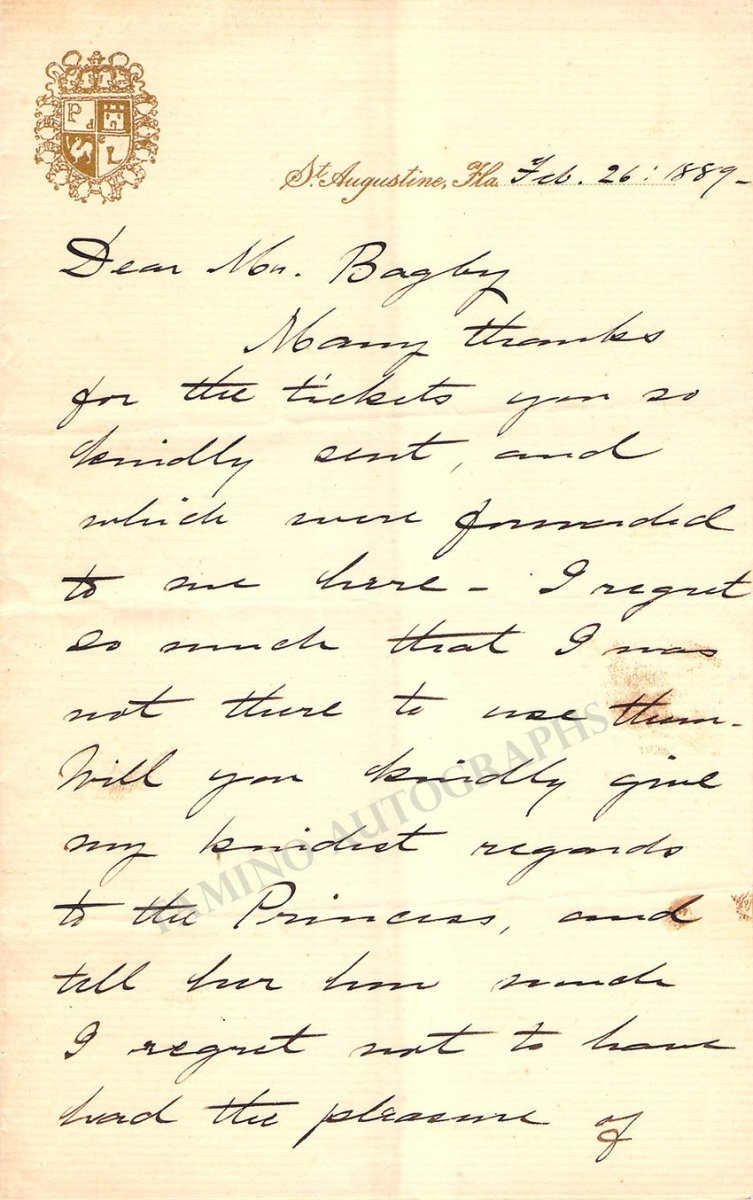 P d
e L
St. Augustine, Fla. Feb. 26: 1889 -
Dear Mr. Bagby
Many thanks
for the tickets you so
kindly sent, and
which were forwarded
to me here - I regret
so much that I was
not there to use them -
Will you kindly give
my kindest regards
to the Princess, and
tell her how much
I regret not to have
had the pleasure of
TAMINO AUTOGRAPHS